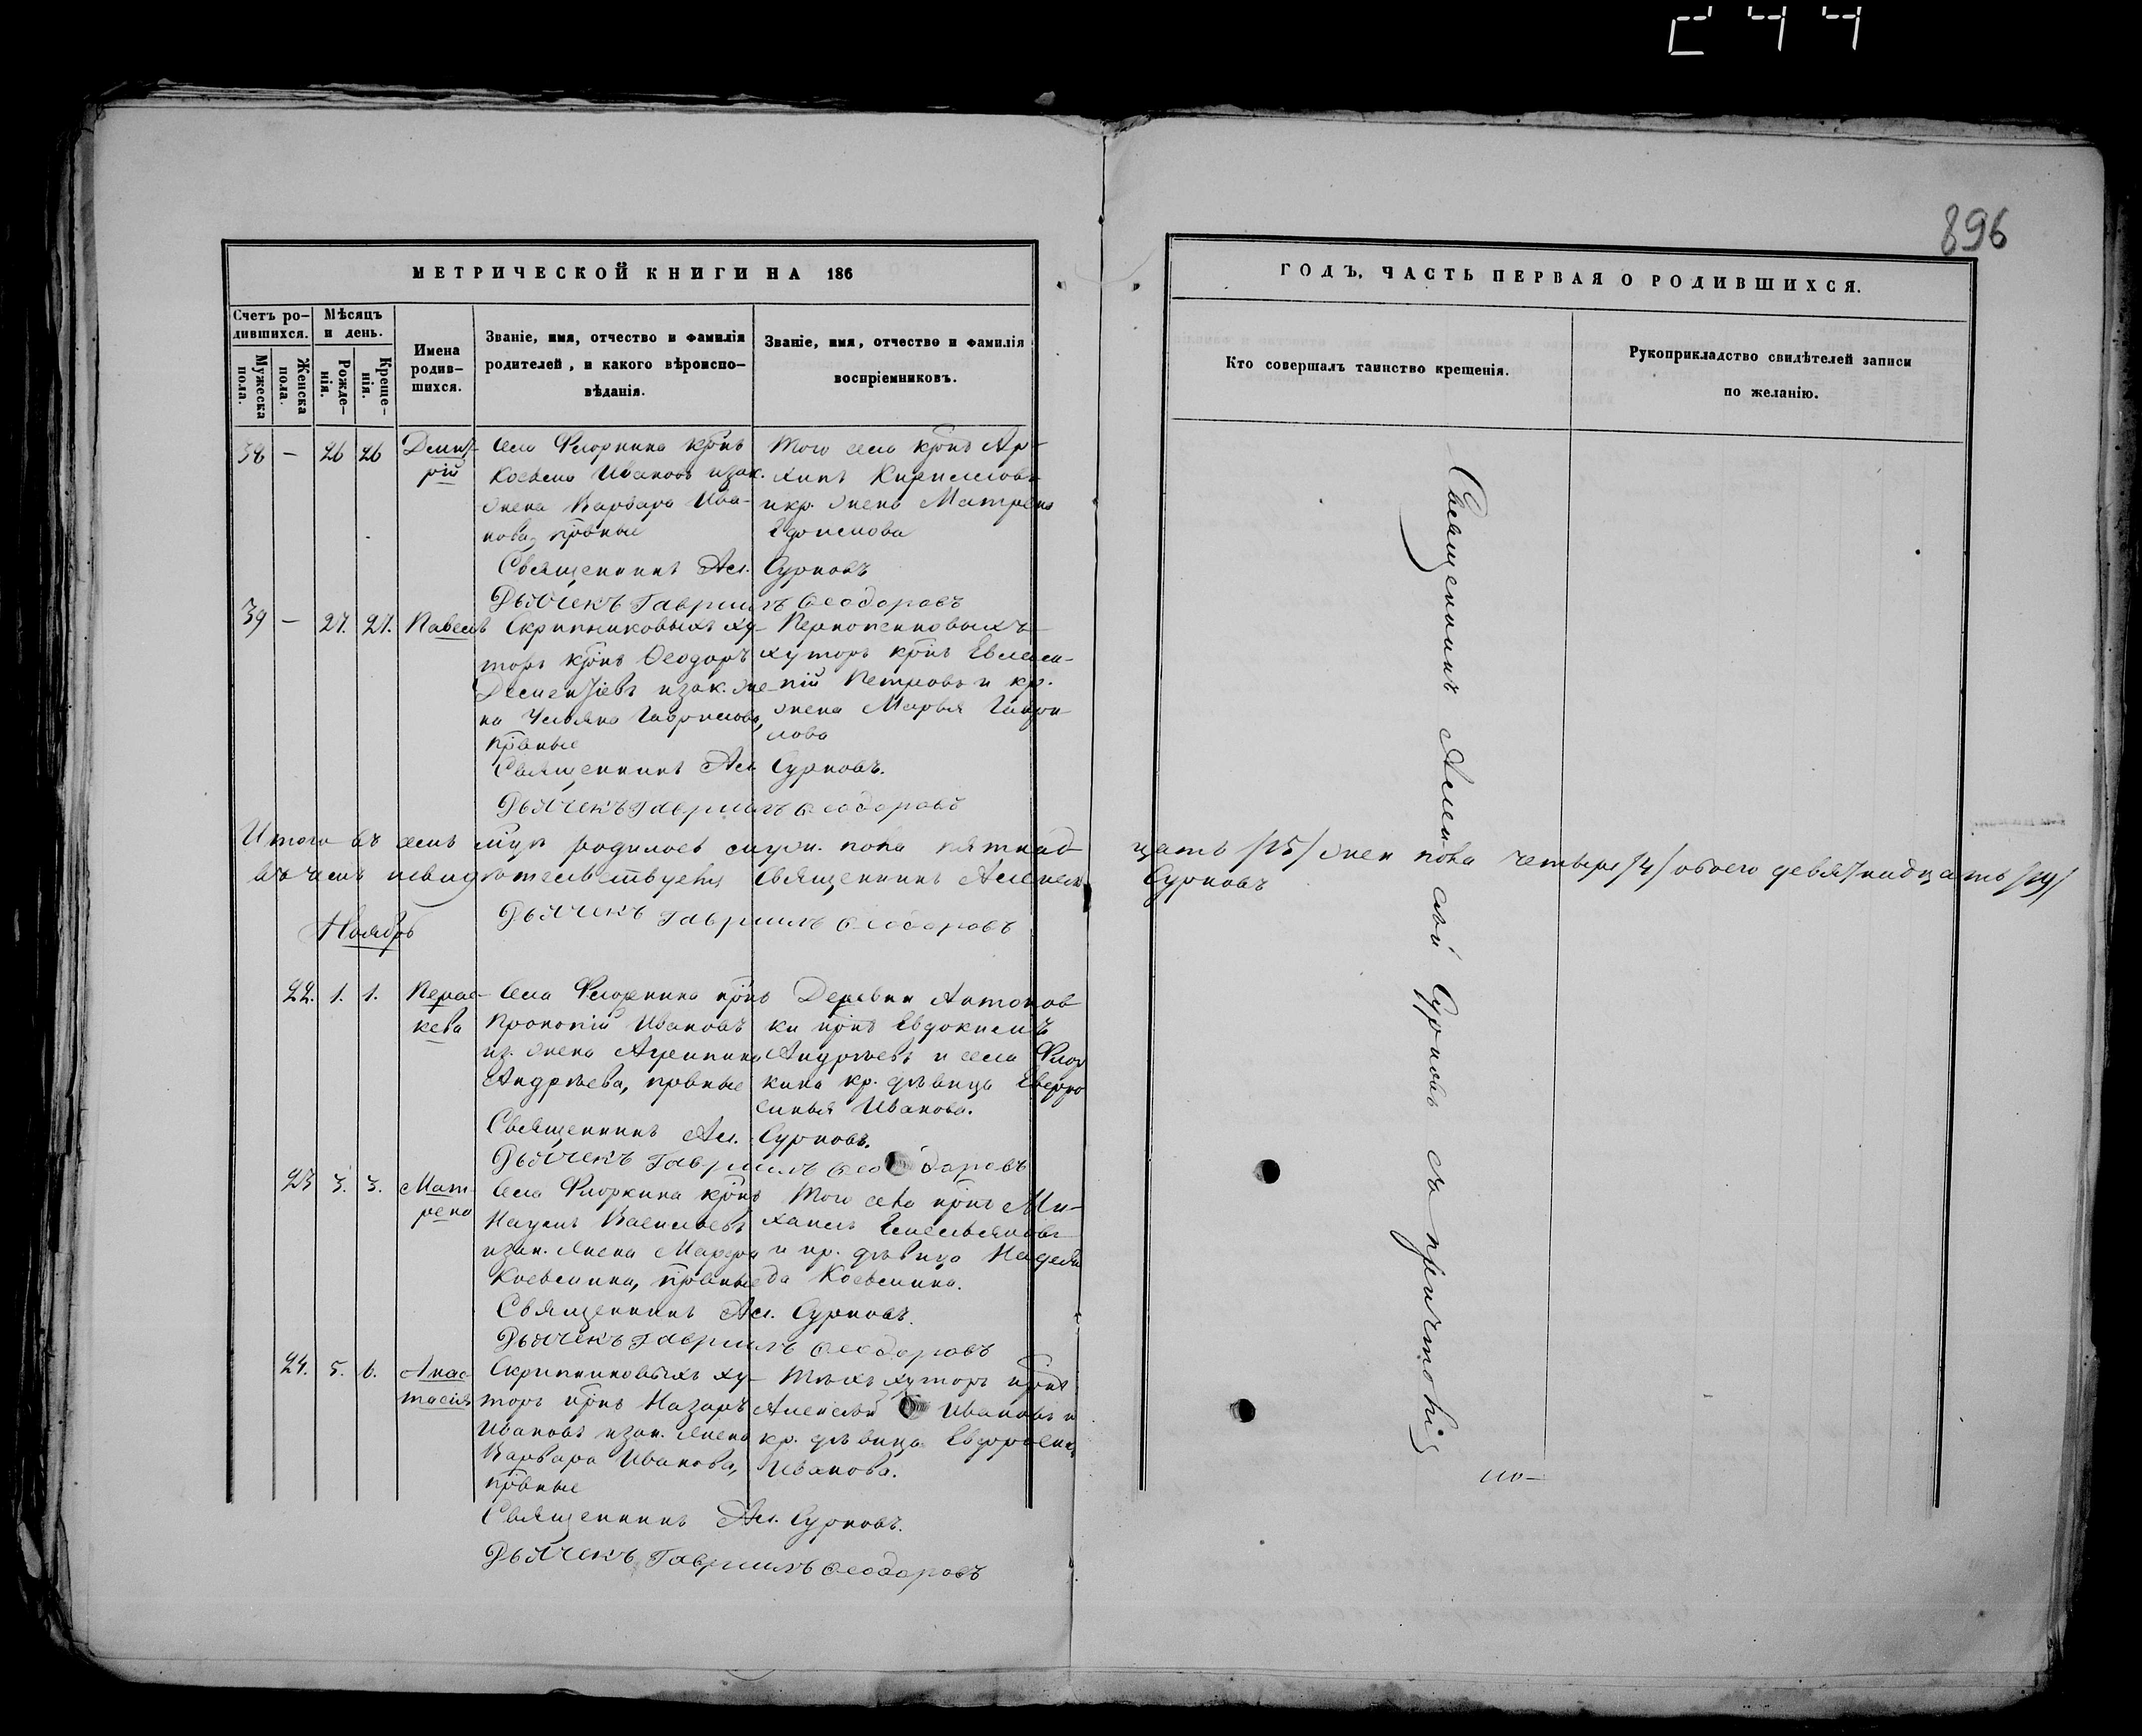 244
896
МЕТРИЧЕСКОЙ КНИГИ НА 186
ГОДЪ, ЧАСТЬ ПЕРВАЯ О РОДИВШИХСЯ.
Счетъ ро-
дившихся.
Мужеска пола.
Женска пола.
Мѣсяцъ
и день.
Рожде-
нія.
Креще-
нія.
Имена
родив-
шихся.
Званіе, имя, отчество и фамилія
родителей, и какого вѣроиспо-
вѣданія.
Званіе, имя, отчество и фамилія
воспріемниковъ.
Кто совершалъ таинство крещенія.
Рукоприкладство свидѣтелей записи
по желанію.
38 — 26 26 Димит-
рій
Села Флоркина крнъ
Косьма Ивановъ изак.
жена Варвара Ива-
нова, првные
Того села крнъ Ар-
хипъ Кирилловъ
и кр. жена Матрена
Священникъ Ал. Сурковъ
Дьячекъ Гавриилъ Ѳеодоровъ
39 — 27. 27. Павелъ
Скрипниковыхъ ху-
торъ крнъ Ѳеодоръ
Дементіевъ изак. же-
на Ульяна Гаврилова,
првные
хуторъ крнъ Евлам-
пій Петровъ и кр.
жена Марья Гаври-
лова
Священникъ Ал. Сурковъ.
Дьячекъ Гавриилъ Ѳеодоровъ
Итого въ семъ мцѣ родилось мужи. пола пятнад-
цать /15/ жен пола четыре /4/ обоего девятнадцать /19/
въ чемъ и свидѣтельствуетъ Священникъ Алексѣй
Сурковъ
Дьячекъ Гавриилъ Ѳеодоровъ
Ноябрь
22. 1. 1. Парас-
кева
Села Флоркина крнъ
Прокопій Ивановъ
из. жена Агрипина
Андрѣева, првные
Деревни Антонов-
ки крнъ Евдокимъ
Андрѣевъ и села Флор
кина кр. дѣвица Евфро
синья Иванова.
Священникъ Ал. Сурковъ.
Дьячекъ Гавриилъ Ѳеодоровъ
23 3. 3. Мат-
рена
Села Флоркина крнъ
Наумъ Васильевъ
изак. жена Марфа
Косьмина, првные
Того села крнъ Ми-
хаилъ Емельяновъ
и кр. дѣвица Надеж
да Косьмина.
Священникъ Ал. Сурковъ.
Дьячекъ Гавриилъ Ѳеодоровъ
24. 5. 6. Анас-
тасія
Скрипниковыхъ ху-
торъ крнъ Назаръ
Ивановъ изак. жена
Варвара Иванова,
првные
Тѣхъ хуторъ крнъ
Алексѣй Ивановъ и
кр. дѣвица Евфросинья
Иванова.
Священникъ Ал. Сурковъ.
Дьячекъ Гавриилъ Ѳеодоровъ
Священникъ Алексѣй Сурковъ съ причтомъ